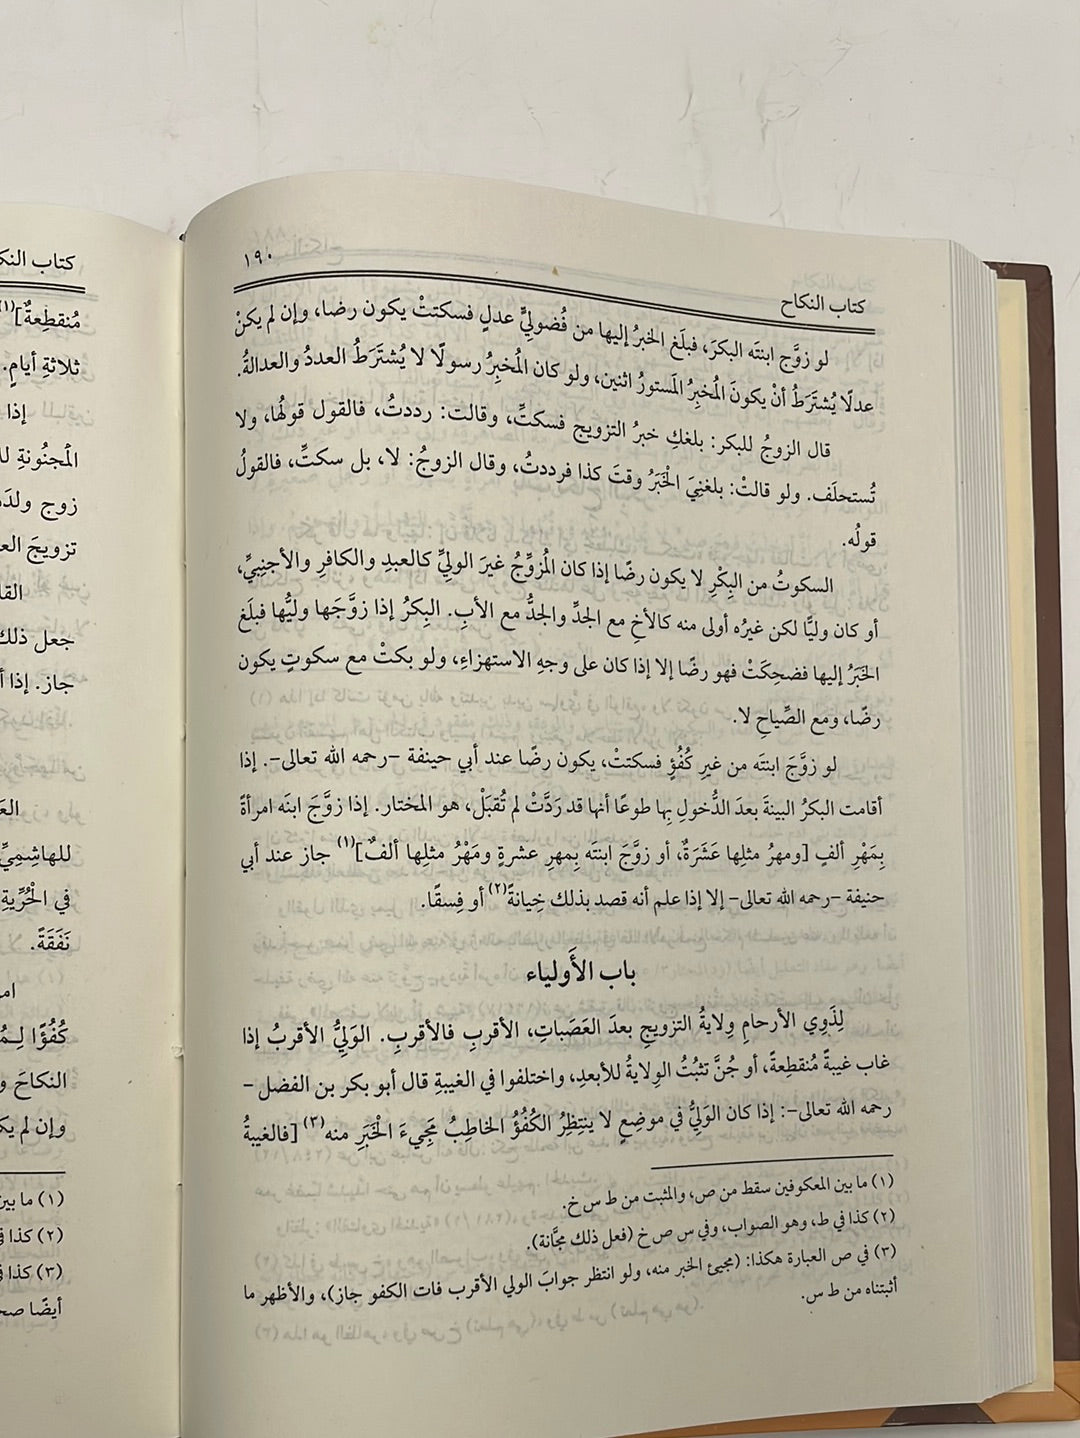 كتاب النكاح
١٩٠
لو زوَّج ابنتَه البكرَ، فبلَغ الخبرُ إليها من فُضوليٍّ عدلٍ فسكتتْ يكون رضا، وإن لم يكنْ
عدلًا يُشتَرَطُ أنْ يكونَ المُخبِرُ المَستورُ اثنين، ولو كان المُخبِرُ رسولًا لا يُشتَرَطُ العددُ والعدالةُ.
قال الزوجُ للبكر: بلغكِ خبرُ التزويج فسكتِّ، وقالت: رددتُ، فالقول قولُها، ولا
تُستحلَف. ولو قالتْ: بلغنِيَ الْخَبَرُ وقتَ كذا فرددتُ، وقال الزوجُ: لا، بل سكتِّ، فالقولُ
قولُه.
السكوتُ من البِكْرِ لا يكون رضًا إذا كان المُزوِّجُ غيرَ الوليِّ كالعبدِ والكافرِ والأجنبِيِّ،
أو كان وليًّا لكن غيرُه أولى منه كالأخِ مع الجدِّ والجدُّ مع الأبِ. البِكرُ إذا زوَّجَها وليُّها فبلَغ
الخَبَرُ إليها فضحِكَتْ فهو رضًا إلا إذا كان على وجهِ الاستهزاءِ، ولو بكتْ مع سكوتٍ يكون
رضًا، ومع الصِّياحِ لا.
لو زوَّجَ ابنتَه من غيرِ كُفُؤٍ فسكتتْ، يكون رضًا عند أبي حينفة -رحمه الله تعالى-. إذا
أقامت البكرُ البينةَ بعدَ الدُّخولِ بِها طوعًا أنها قد رَدَّتْ لم تُقبَلْ، هو المختار. إذا زوَّجَ ابنَه امرأةً
بِمَهْرِ ألفٍ [ومهرُ مثلِها عَشَرَةٌ، أو زوَّجَ ابنتَه بِمهرِ عشرةٍ ومَهْرُ مثلِها ألفٌ](١) جاز عند أبي
حنيفة -رحمه الله تعالى- إلا إذا علم أنه قصد بذلك خِيانةً(٢) أو فِسقًا.
باب الأَولياء
لِذَوِي الأرحامِ وِلايةُ التزويجِ بعدَ العَصَباتِ، الأقربِ فالأقربِ. الوَلِيُّ الأقربُ إذا
غاب غيبةً مُنقطِعةً، أو جُنَّ تثبُتُ الوِلايةُ للأبعدِ، واختلفوا في الغيبةِ قال أبو بكر بن الفضل -
رحمه الله تعالى-: إذا كان الوَلِيُّ في موضِعٍ لا ينتظِرُ الكُفُؤُ الخاطِبُ مَجِيءَ الْخَبَرِ منه(٣) [فالغيبةُ
(١) ما بين المعكوفين سقط من ص، والمثبت من ط س خ.
(٢) كذا في ط، وهو الصواب، وفي س ص خ (فعل ذلك مجَّانة).
(٣) في ص العبارة هكذا: (مجيئ الخبر منه، ولو انتظر جوابَ الولي الأقرب فات الكفو جاز)، والأظهر ما
أثبتناه من ط س.
كتاب
مُنقطِعةٌ](١)
ثلاثةِ أيامٍ.
إذا
المْجنُونةِ
زوج
تزويجَ
جعل
جاز. إذا
للهاشِمِيِّ
في الْحُرِّيةِ
نَفَقَةً.
كُفُؤًا
النكاحَ
وإن لم
(١) ما بين
(٢) كذا
(٣) كذا
أيضًا